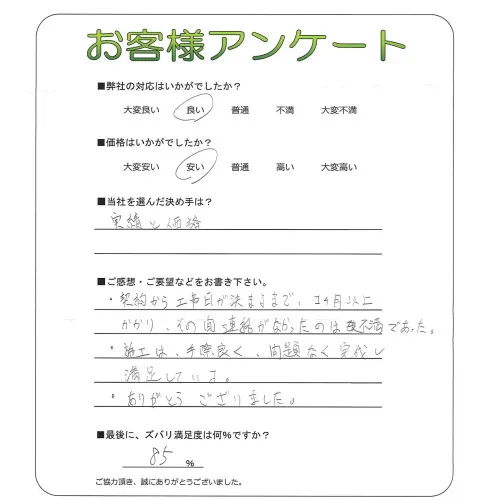 お客様アンケート
■弊社の対応はいかがでしたか？
大変良い 良い 普通 不満 大変不満
■価格はいかがでしたか？
大変安い 安い 普通 高い 大変高い
■当社を選んだ決め手は？
実績と価格
■ご感想・ご要望などをお書き下さい。
・契約から工事日が決まるまで、1ヶ月以上
かかり、その間連絡がなかったのは不満であった。
・施工は、手際良く、問題なく完成し
満足しています。
・ありがとうございました。
■最後に、ズバリ満足度は何%ですか？
85 %
ご協力頂き、誠にありがとうございました。